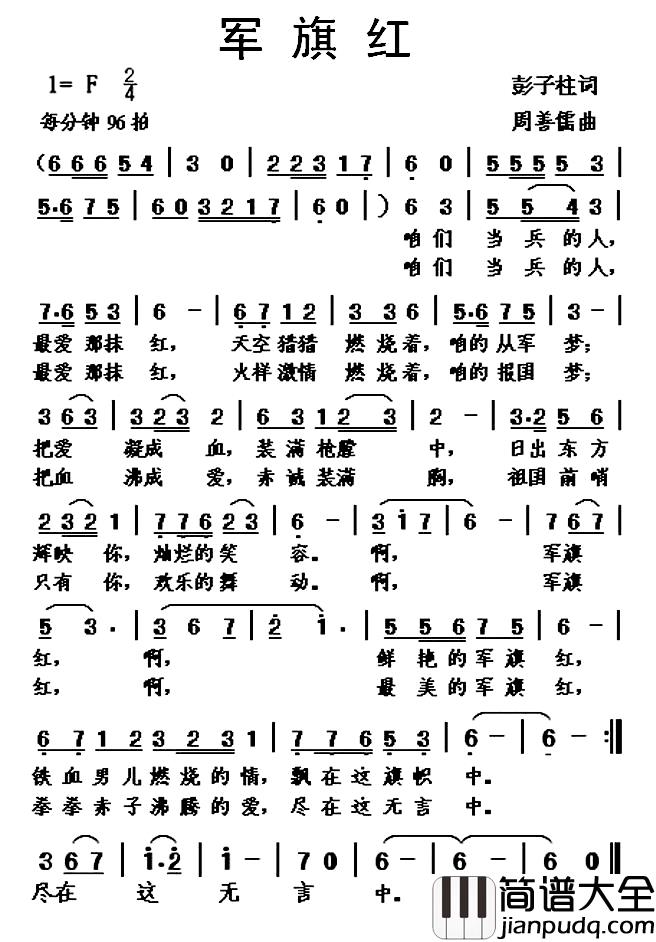 军旗红
1= F 2/4
彭子柱词
每分钟 96 拍
周善儒曲
(6 6 6 5 4 | 3 0 | 2 2 3 1 7 | 6 0 | 5 5 5 5 3 |
5·6 7 5 | 6 0 3 2 1 7 | 6 0 | ) 6 3 | 5 5 4 3 |
咱们 当兵的人,
咱们 当兵的人,
7·6 5 3 | 6 - | 6 7 1 2 | 3 3 6 | 5·6 7 5 | 3 - |
最爱那抹 红, 天空猎猎 燃烧着, 咱的从军 梦;
最爱那抹 红, 火样激情 燃烧着, 咱的报国 梦;
3 6 3 | 3 2 3 2 | 6 3 1 2 3 | 2 - | 3·2 5 6 |
把爱 凝成 血, 装满枪膛 中, 日出东方
把血 沸成 爱, 赤诚装满 胸, 祖国前哨
2 3 2 1 | 7 7 6 2 3 | 6 - | 3 1 7 | 6 - | 7 6 7 |
辉映 你, 灿烂的笑 容。 啊, 军旗
只有 你, 欢乐的舞 动。 啊, 军旗
5 3 · | 3 6 7 | 2 1 · | 5 5 6 7 5 | 6 - |
红, 啊, 鲜艳的军旗 红,
红, 啊, 最美的军旗 红,
6 7 1 2 | 3 3 2 3 1 | 7 7 6 5 3 | 6 - | 6 - :||
铁血男儿燃烧的情, 飘在这旗帜 中。
拳拳赤子沸腾的爱, 尽在这无言 中。
3 6 7 | 1·2 | 1 - | 7 0 | 6 - | 6 - | 6 0 |
尽在 这 无 言 中。
简谱大全
jianpudq.com